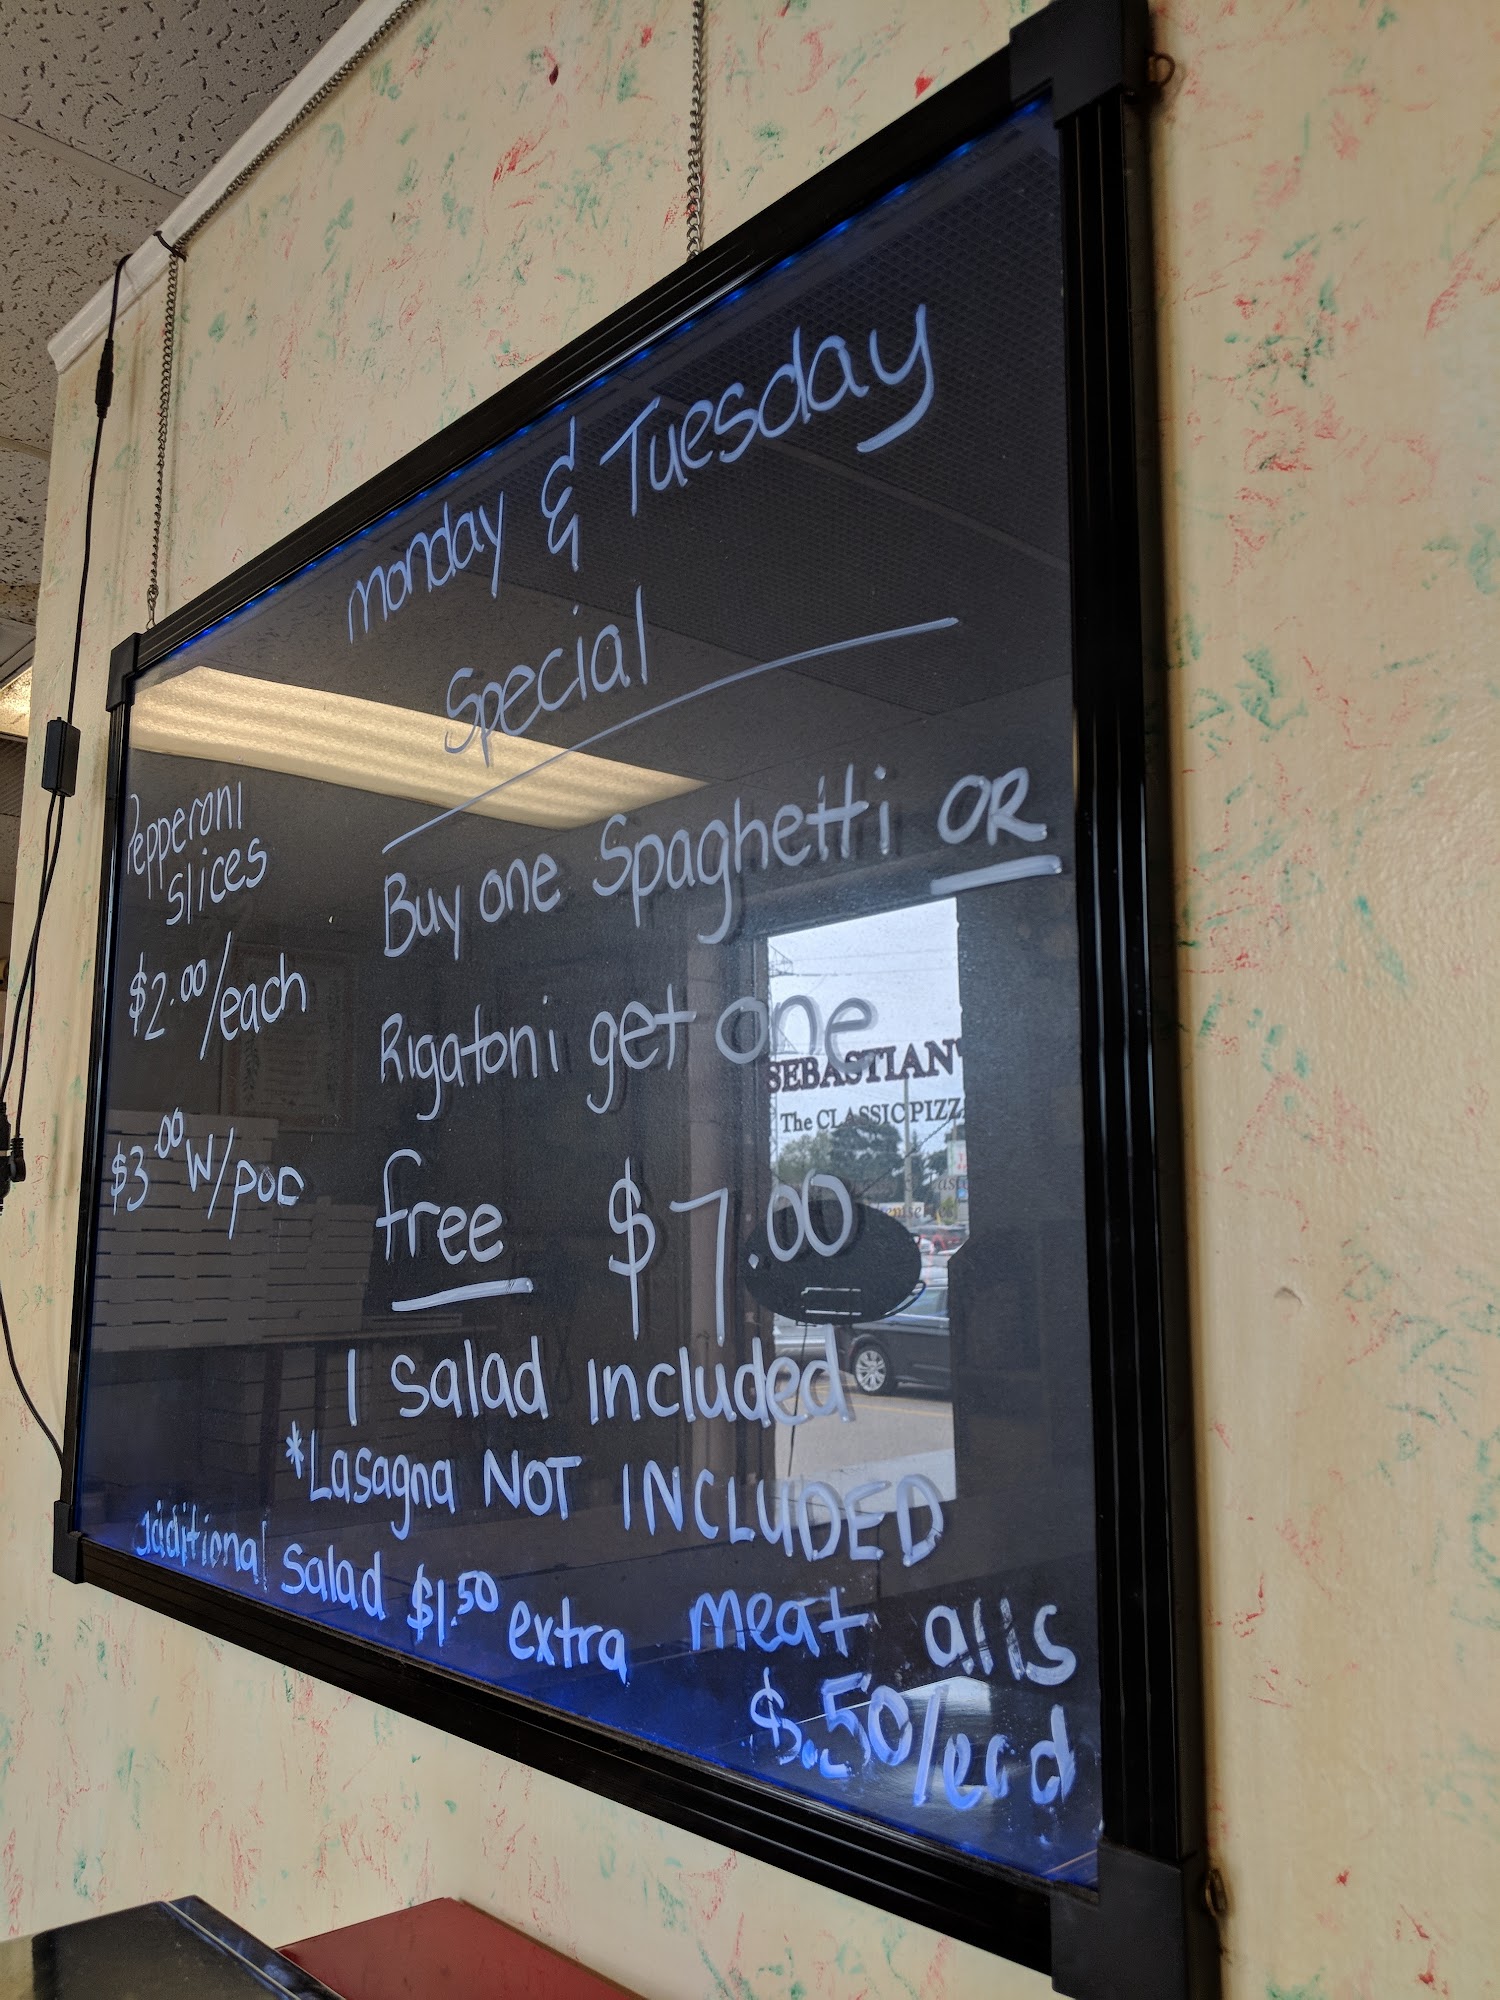 Monday & Tuesday
Special
Pepperoni
Slices
$2.00/each
$3.00 w/pop
Buy one Spaghetti OR
Rigatoni get one
free $7.00
1 Salad included
*Lasagna NOT INCLUDED
additional Salad $1.50 extra
meat
$.50/
SEBASTIAN'
The CLASSIC PIZZ